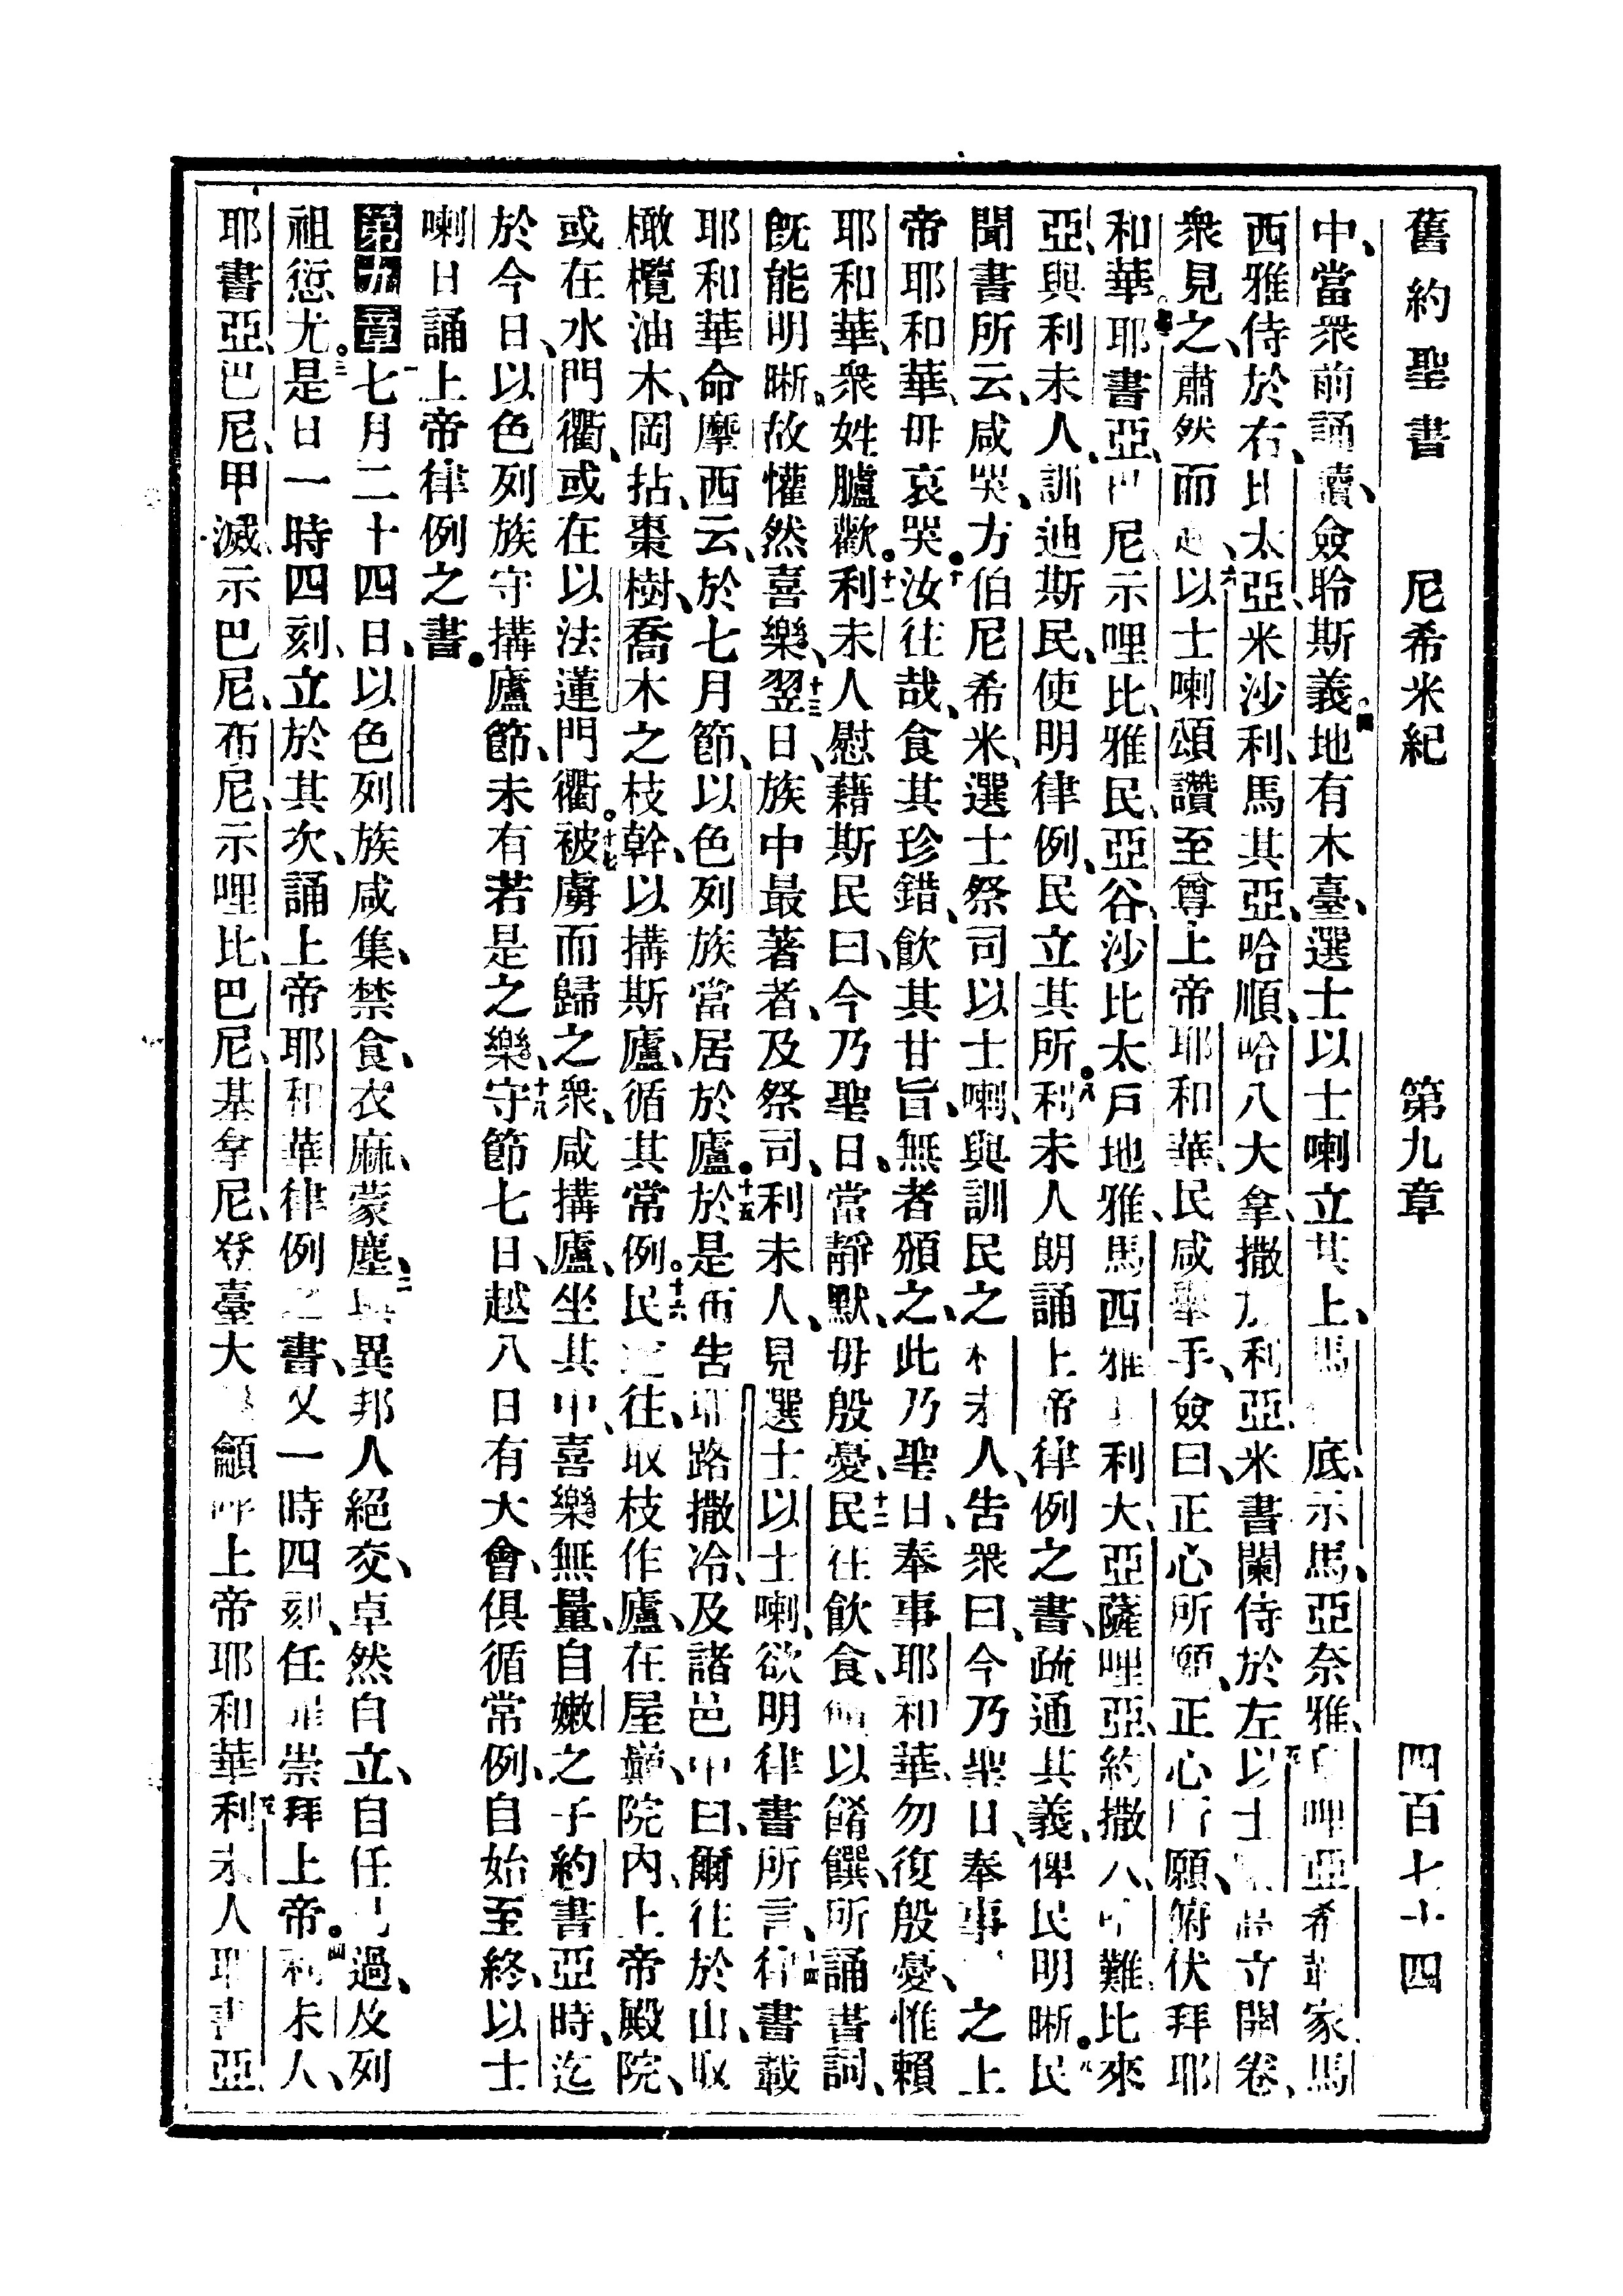 舊約聖書 尼希米紀 第九章 四百七十四
中、當衆前誦讀、僉聆斯義。四地有木臺、選士以士喇立其上、馬底、示馬、亞奈雅、亞希家馬
西雅侍於右、比太亞、米沙利、馬其亞、哈順、哈八大拿、撒加利亞、米書闌侍於左。五以士立開卷、
衆見之、肅然而起。六以士喇頌讚至尊上帝耶和華、民咸舉手、僉曰、正心所願、正心所願、俯伏拜耶
和華。七耶書亞、巴尼、示哩比、雅民、亞谷、沙比太、戶地雅、馬西雅、利大、亞薩哩亞、約撒八、難、比來
亞、與利未人、訓迪斯民、使明律例、民立其所。八利未人朗誦上帝律例之書、疏通其義、俾民明晰。九民
聞書所云、咸哭、方伯尼希米、選士祭司以士喇、與訓民之利未人、告衆曰、今乃聖日、奉事之上
帝耶和華、毋哀哭。十汝往哉、食其珍錯、飲其甘旨、無者頒之、此乃聖日、奉事耶和華、勿復殷憂、惟賴
耶和華、衆姓臚歡。十一利未人慰藉斯民曰、今乃聖日、當靜默、毋殷憂、十二民往飲食、以餚饌、所誦書詞、
旣能明晰、故懽然喜樂、十三翌日、族中最著者、及祭司、利未人、見選士以士喇、欲明律書所言、十四律書載
耶和華命摩西云、於七月節、以色列族當居於廬。十五於是布告耶路撒冷、及諸邑中曰、爾往於山、取
橄欖油木、岡拈、棗樹、喬木之枝幹、以搆斯廬、循其常例。十六民往、取枝作廬、在屋巔、院內、上帝殿院、
或在水門衢、或在以法蓮門衢。十七被虜而歸之衆、咸搆廬、坐其中、喜樂無量、自嫩之子約書亞時、迄
於今日、以色列族守搆廬節、未有若是之樂、十八守節七日、越八日有大會、俱循常例、自始至終、以士
喇日誦上帝律例之書。
第九章 一七月二十四日、以色列族咸集、禁食、衣麻、蒙塵、二與異邦人絕交、卓然自立、自任己過、及列
祖愆尤。三是日一時四刻、立於其次、誦上帝耶和華律例之書、又一時四刻、任罪崇拜上帝。四利未人、
耶書亞、巴尼、甲滅、示巴尼、布尼、示哩比、巴尼、基拿尼、登臺大籲呼上帝耶和華。五利未人耶書亞、